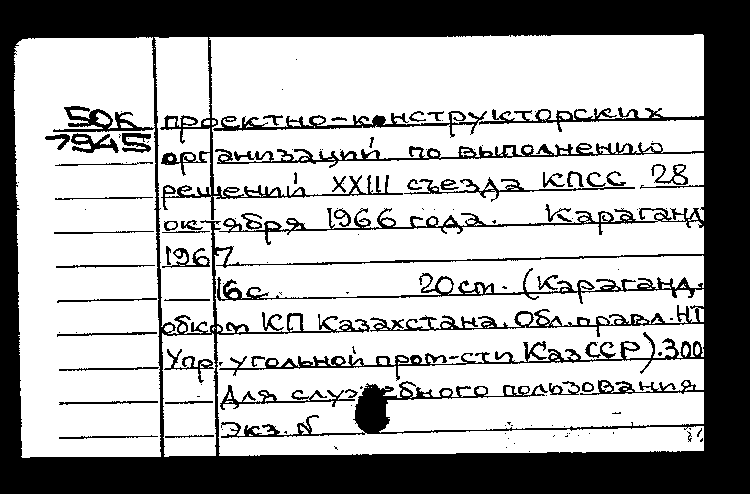 50К проектно-конструкторских
7945 организаций по выполнению
решений XXIII съезда КПСС 28
октября 1966 года. Караганд
1967.
16с. 20см. (Караганд.
обком КП Казахстана. Обл.правл.НТ
Упр.угольной пром-сти КазССР).300
Для служебного пользования
Экз. №